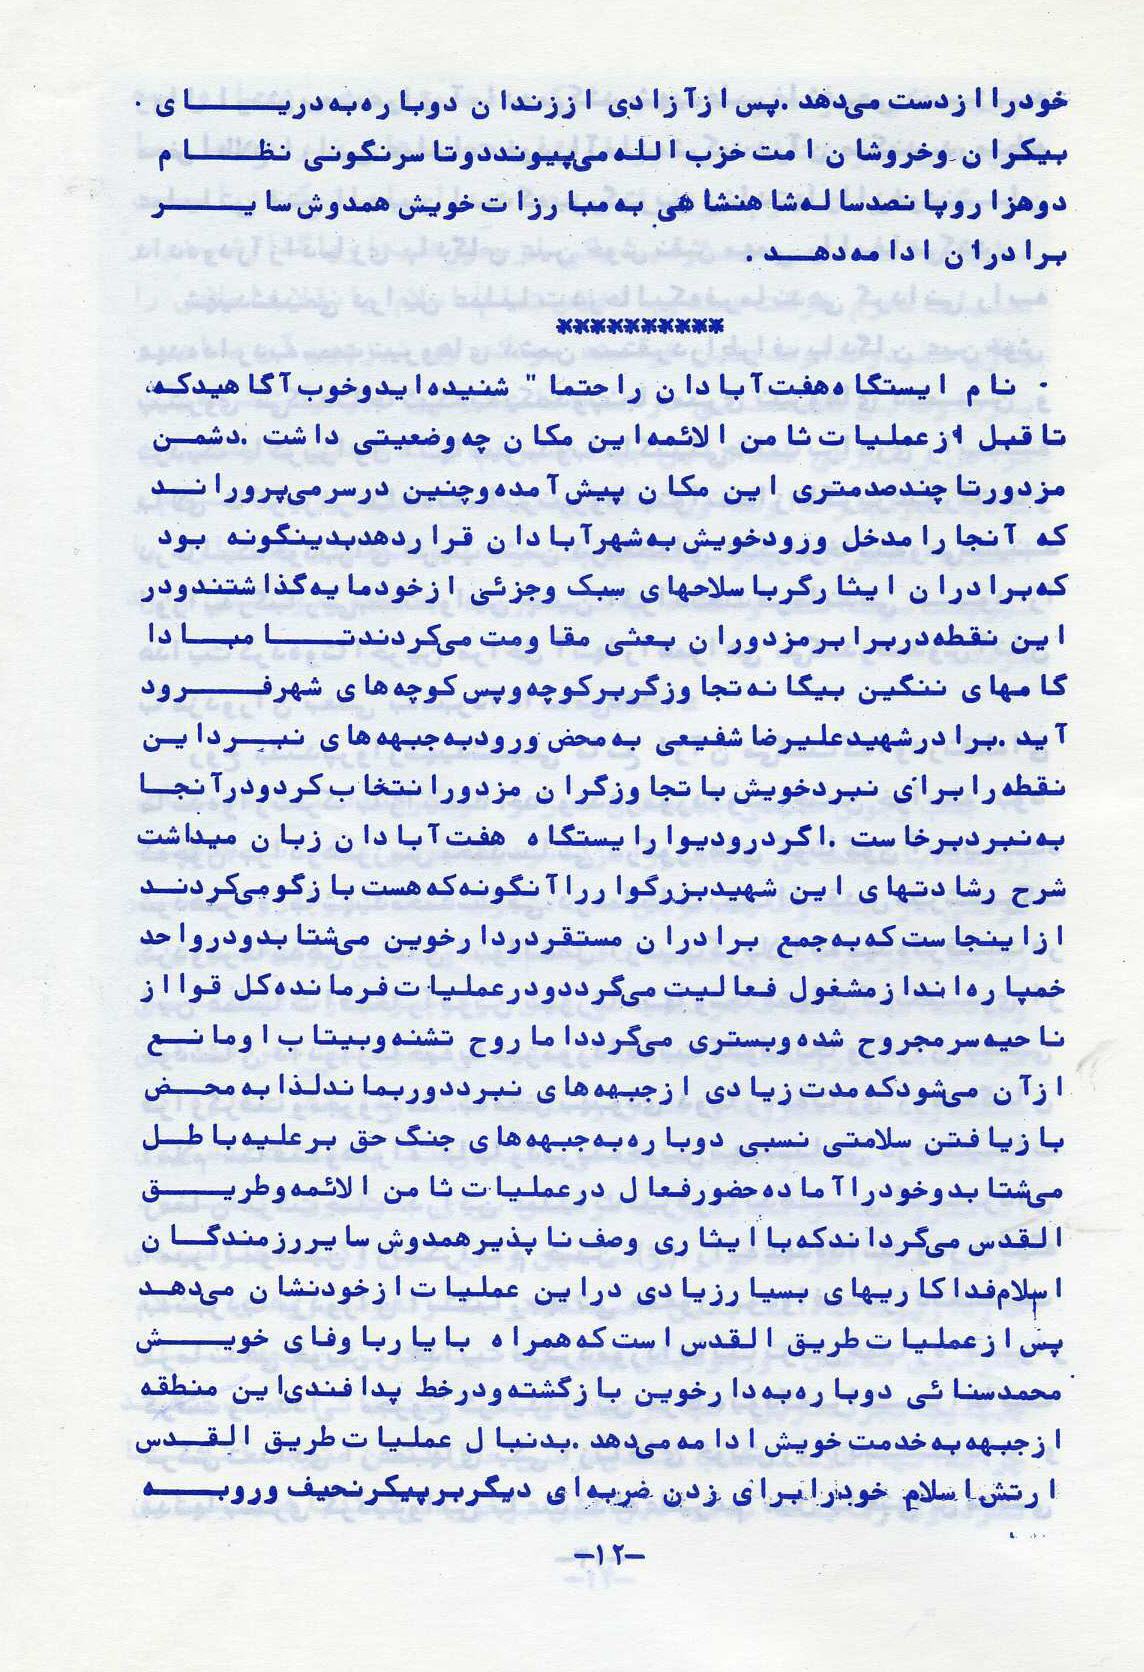 خود را از دست می‌دهد . پس از آزادی از زندان دوباره به دریای
بیکران و خروشان امت حزب الله می‌پیوندد و تا سرنگونی نظام
دوهزار و پانصد ساله شاهنشاهی به مبارزات خویش همدوش سایر
برادران ادامه دهد .
**********
۰ نام ایستگاه هفت آبادان را حتما " شنیده اید و خوب آگاهید که،
تا قبل از عملیات ثامن الائمه این مکان چه وضعیتی داشت . دشمن
مزدور تا چند صد متری این مکان پیش آمده و چنین در سر می‌پروراند
که آنجا را مدخل ورود خویش به شهر آبادان قرار دهد بدینگونه بود
که برادران ایثارگر با سلاحهای سبک و جزئی از خود مایه گذاشتند و در
این نقطه در برابر مزدوران بعثی مقاومت می‌کردند تا مبادا
گامهای ننگین بیگانه تجاوزگر بر کوچه و پس کوچه های شهر فرود
آید . برادر شهید علیرضا شفیعی به محض ورود به جبهه های نبرد این
نقطه را برای نبرد خویش با تجاوزگران مزدور انتخاب کرد و در آنجا
به نبرد برخاست . اگر در و دیوار ایستگاه هفت آبادان زبان میداشت
شرح رشادتهای این شهید بزرگوار را آنگونه که هست بازگو می‌کردند
از اینجاست که به جمع برادران مستقر در دارخوین می‌شتابد و در واحد
خمپاره انداز مشغول فعالیت می‌گردد و در عملیات فرمانده کل قوا از
ناحیه سر مجروح شده و بستری می‌گردد اما روح تشنه و بیتاب او مانع
از آن می‌شود که مدت زیادی از جبهه های نبرد دور بماند لذا به محض
بازیافتن سلامتی نسبی دوباره به جبهه های جنگ حق بر علیه باطل
می‌شتابد و خود را آماده حضور فعال در عملیات ثامن الائمه و طریق
القدس می‌گرداند که با ایثاری وصف ناپذیر همدوش سایر رزمندگان
اسلام فداکاریهای بسیار زیادی در این عملیات از خود نشان می‌دهد
پس از عملیات طریق القدس است که همراه با یار باوفای خویش
محمد سنائی دوباره به دارخوین بازگشته و در خط پدافندی این منطقه
از جبهه به خدمت خویش ادامه می‌دهد . بدنبال عملیات طریق القدس
ارتش اسلام خود را برای زدن ضربه ای دیگر بر پیکر نحیف و رو به
-۱۲-